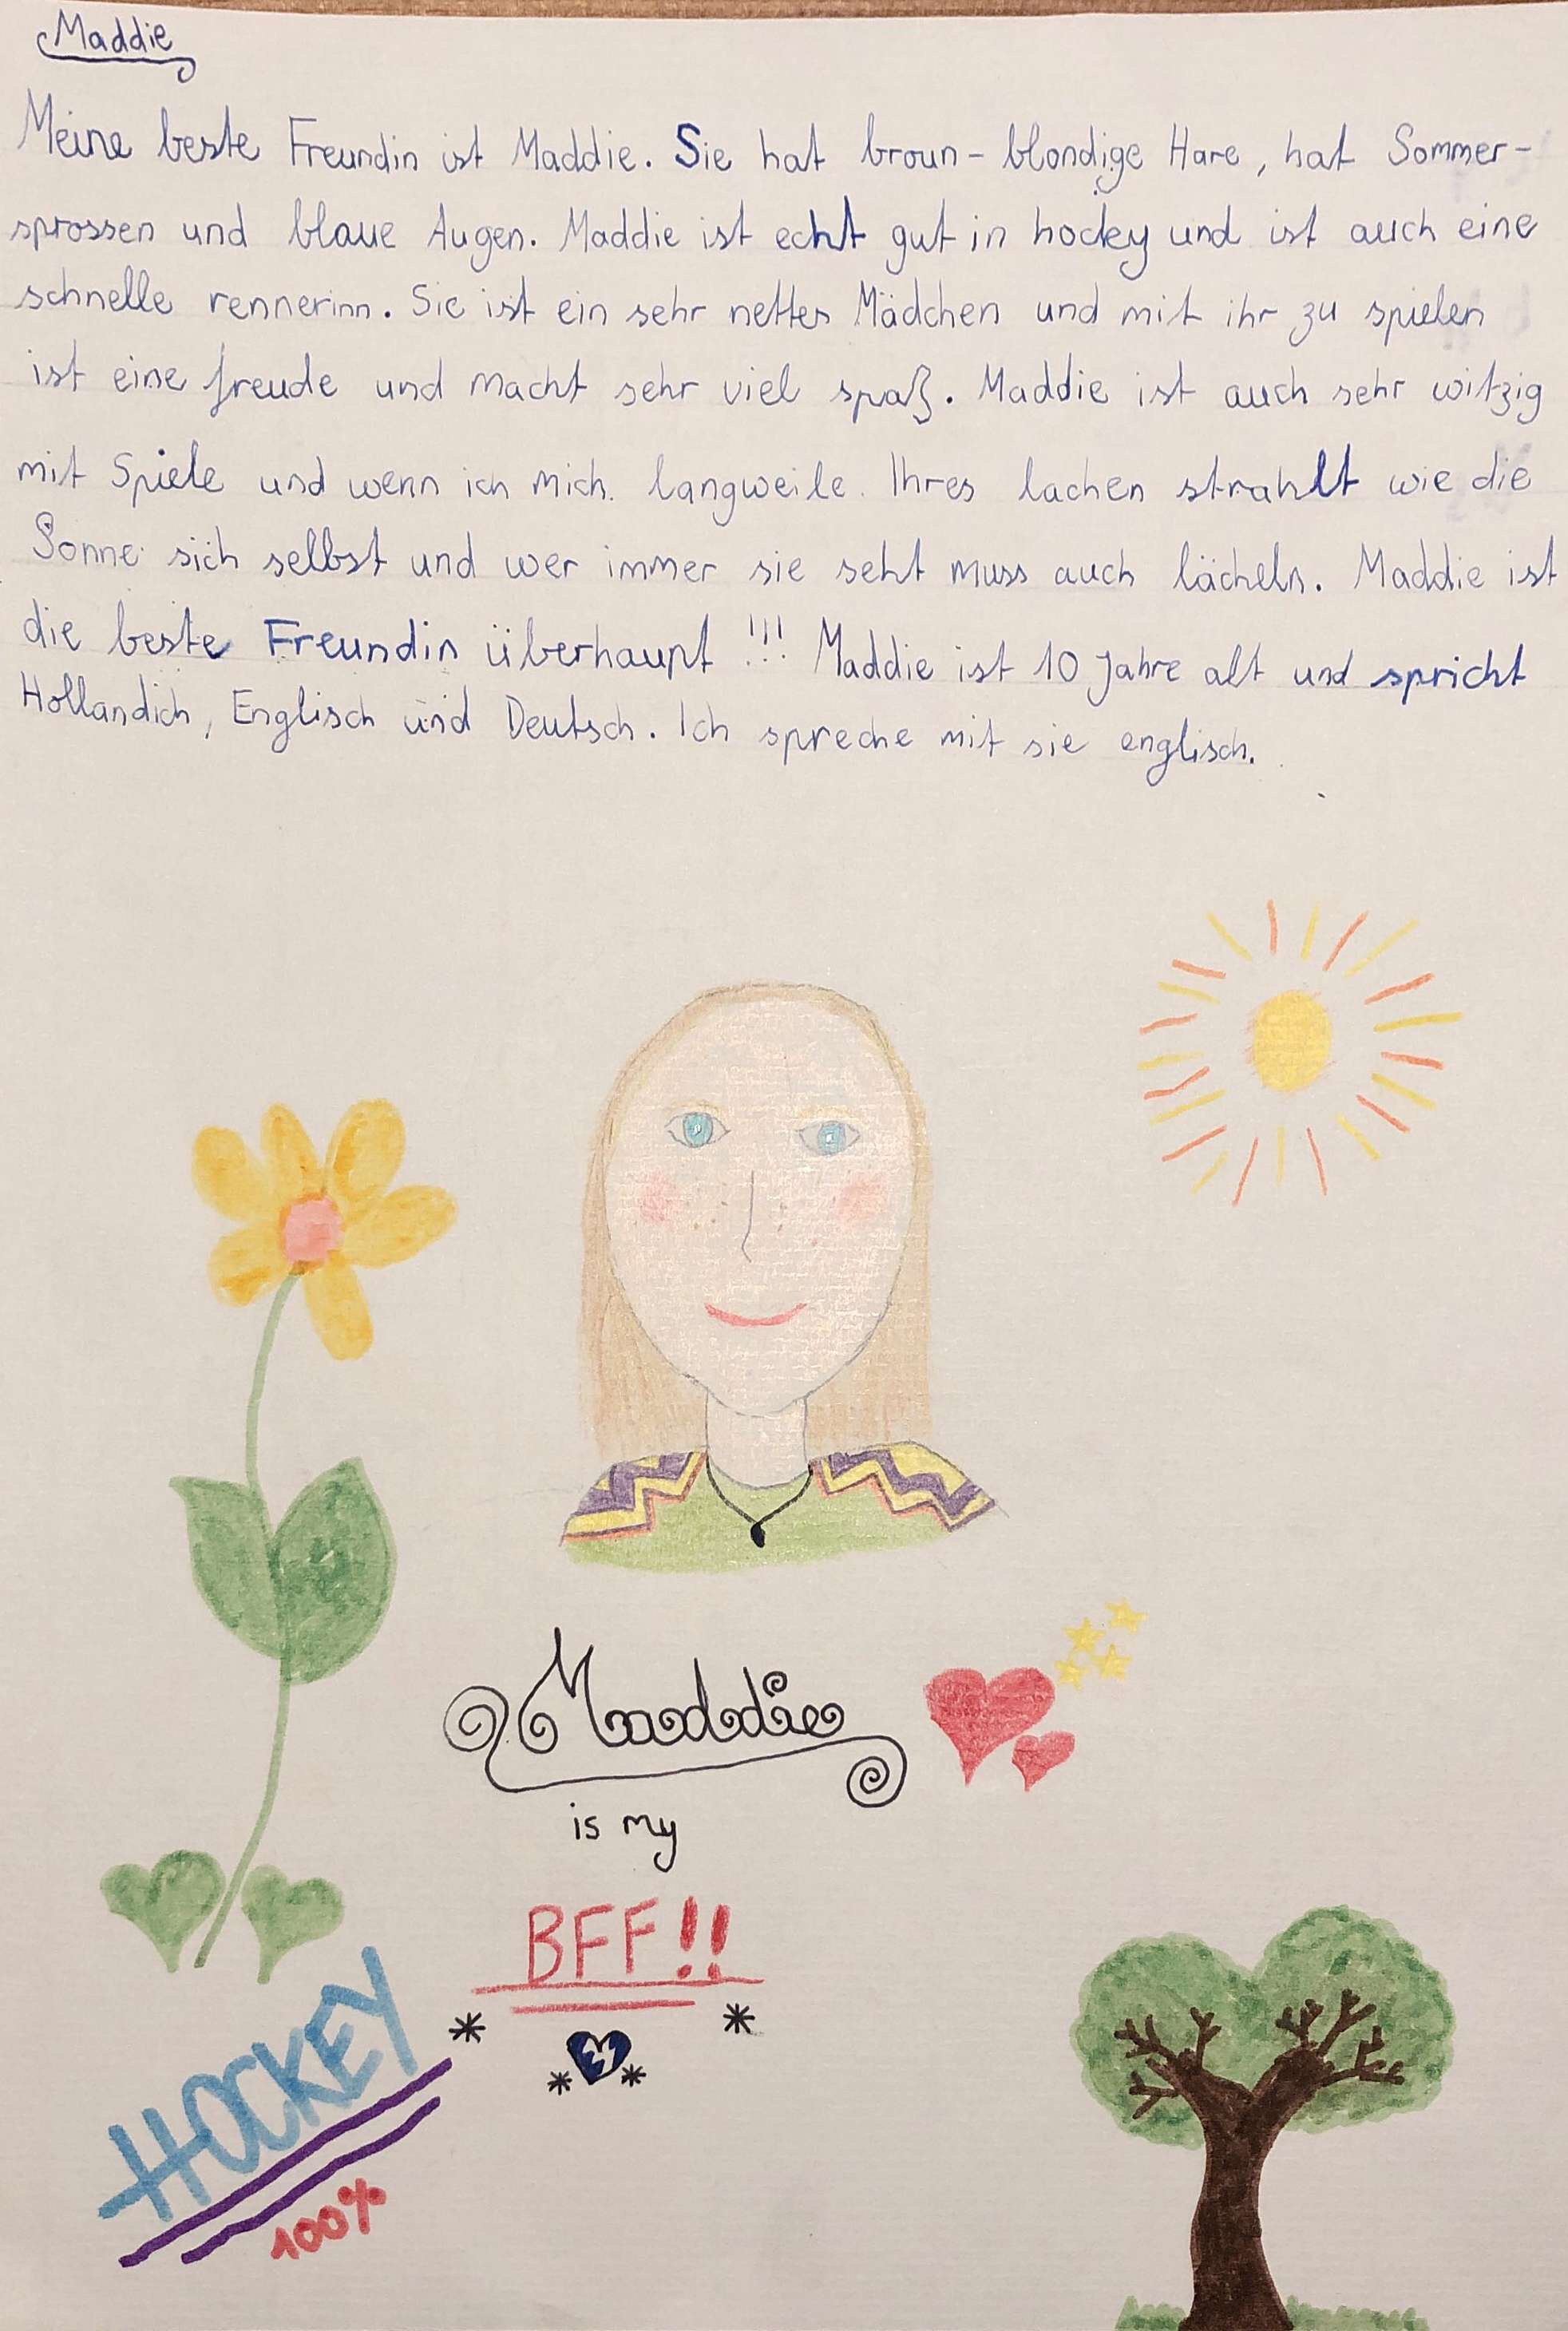 Maddie
Meine beste Freundin ist Maddie. Sie hat broun-blondige Hare, hat Sommer-
sprossen und blaue Augen. Maddie ist echt gut in hockey und ist auch eine
schnelle rennerinn. Sie ist ein sehr nettes Mädchen und mit ihr zu spielen
ist eine freude und macht sehr viel spaß. Maddie ist auch sehr witzig
mit Spiele und wenn ich mich langweile. Ihres lachen strahlt wie die
Sonne sich selbst und wer immer sie seht muss auch lächeln. Maddie ist
die beste Freundin überhaupt !!! Maddie ist 10 Jahre alt und spricht
Hollandich, Englisch und Deutsch. Ich spreche mit sie englisch.
Maddie
is my
BFF!!
HOCKEY
100%